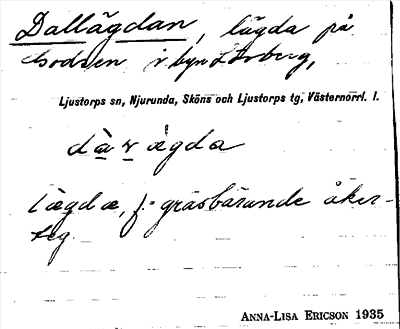 Dallägdan, lägda på
Bodsen i byn Storberg,
Ljustorps sn, Njurunda, Sköns och Ljustorps tg, Västernorrl. l.
lægdæ, f. gräsbärande åker-
teg
ANNA-LISA ERICSON 1935